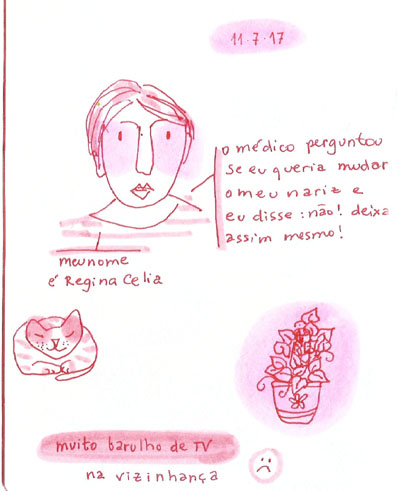 11.7.17
o médico perguntou
se eu queria mudar
o meu nariz e
eu disse: não! deixa
assim mesmo!
meu nome
é Regina Celia
muito barulho de TV
na vizinhança